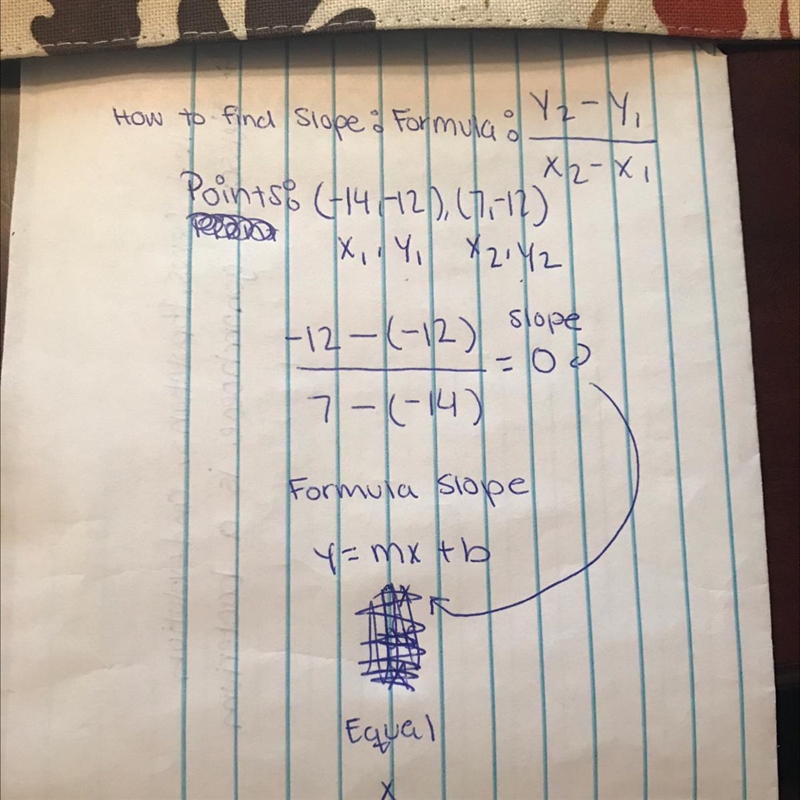 How to find Slope: Formula: Y₂ - Y₁ / X₂ - X₁
Points: (-14,-12), (7,-12)
X₁, Y₁ X₂, Y₂
-12 - (-12) / 7 - (-14) = 0 slope
Formula Slope
y = mx + b
Equal
X